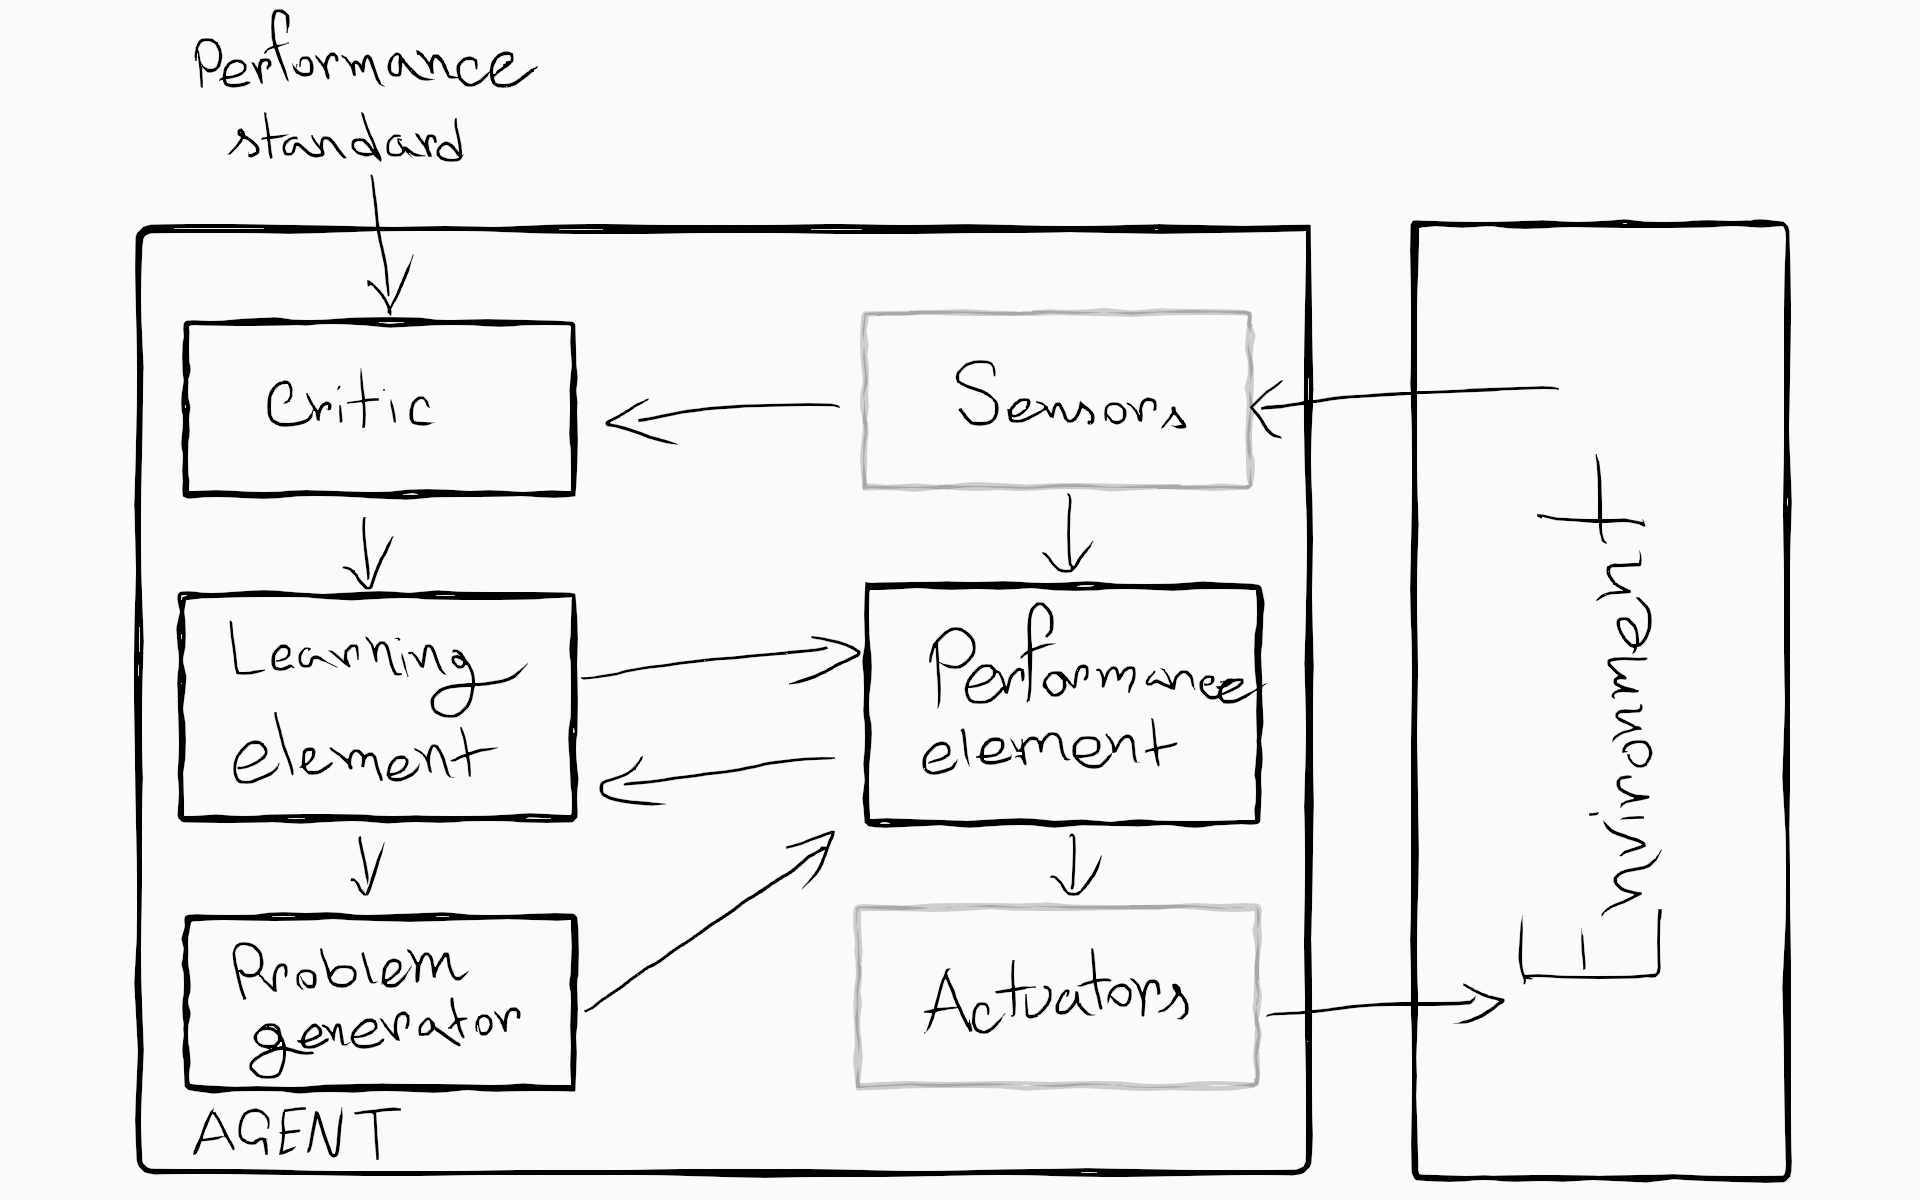 Performance
standard
Critic
Sensors
Learning
element
Performance
element
Problem
generator
Actuators
AGENT
Environment